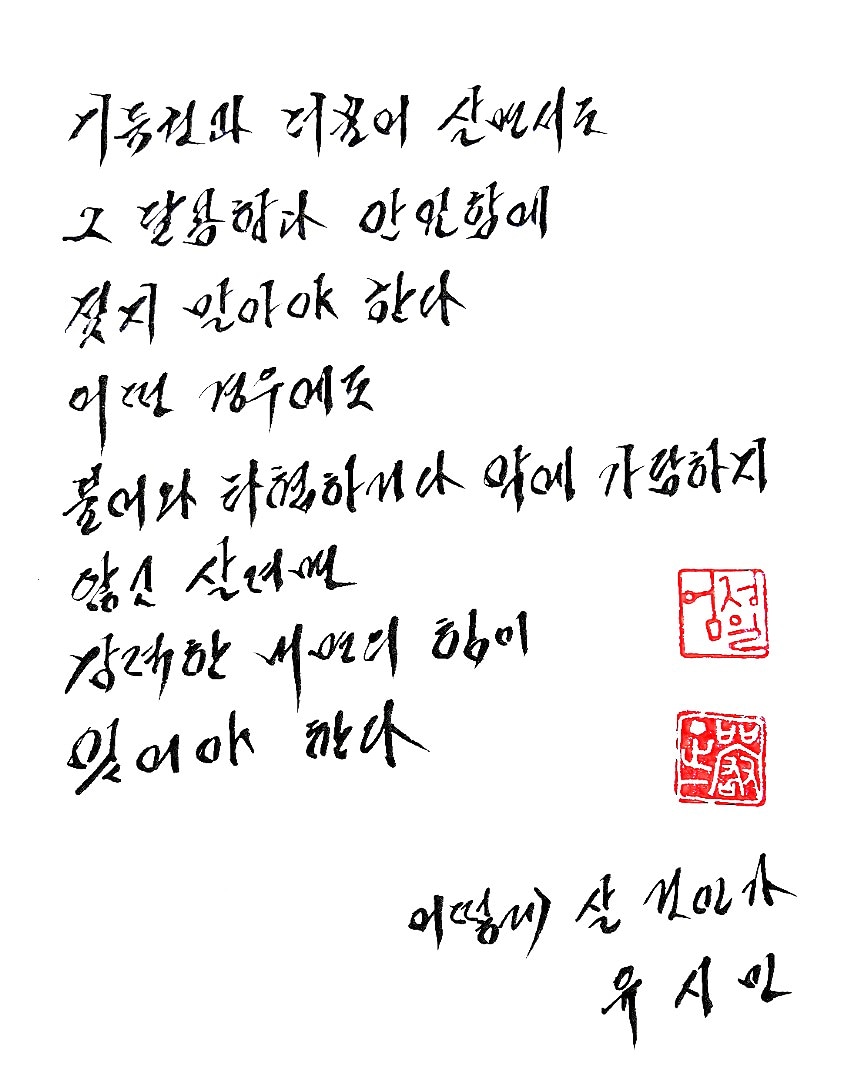 기득권과 더불어 살면서도
그 달콤함과 안일함에
젖지 말아야 한다
어떤 경우에도
불의와 타협하거나 악에 가담하지
않고 살려면
강력한 내면의 힘이
있어야 한다
엄정일
어떻게 살 것인가
유시민